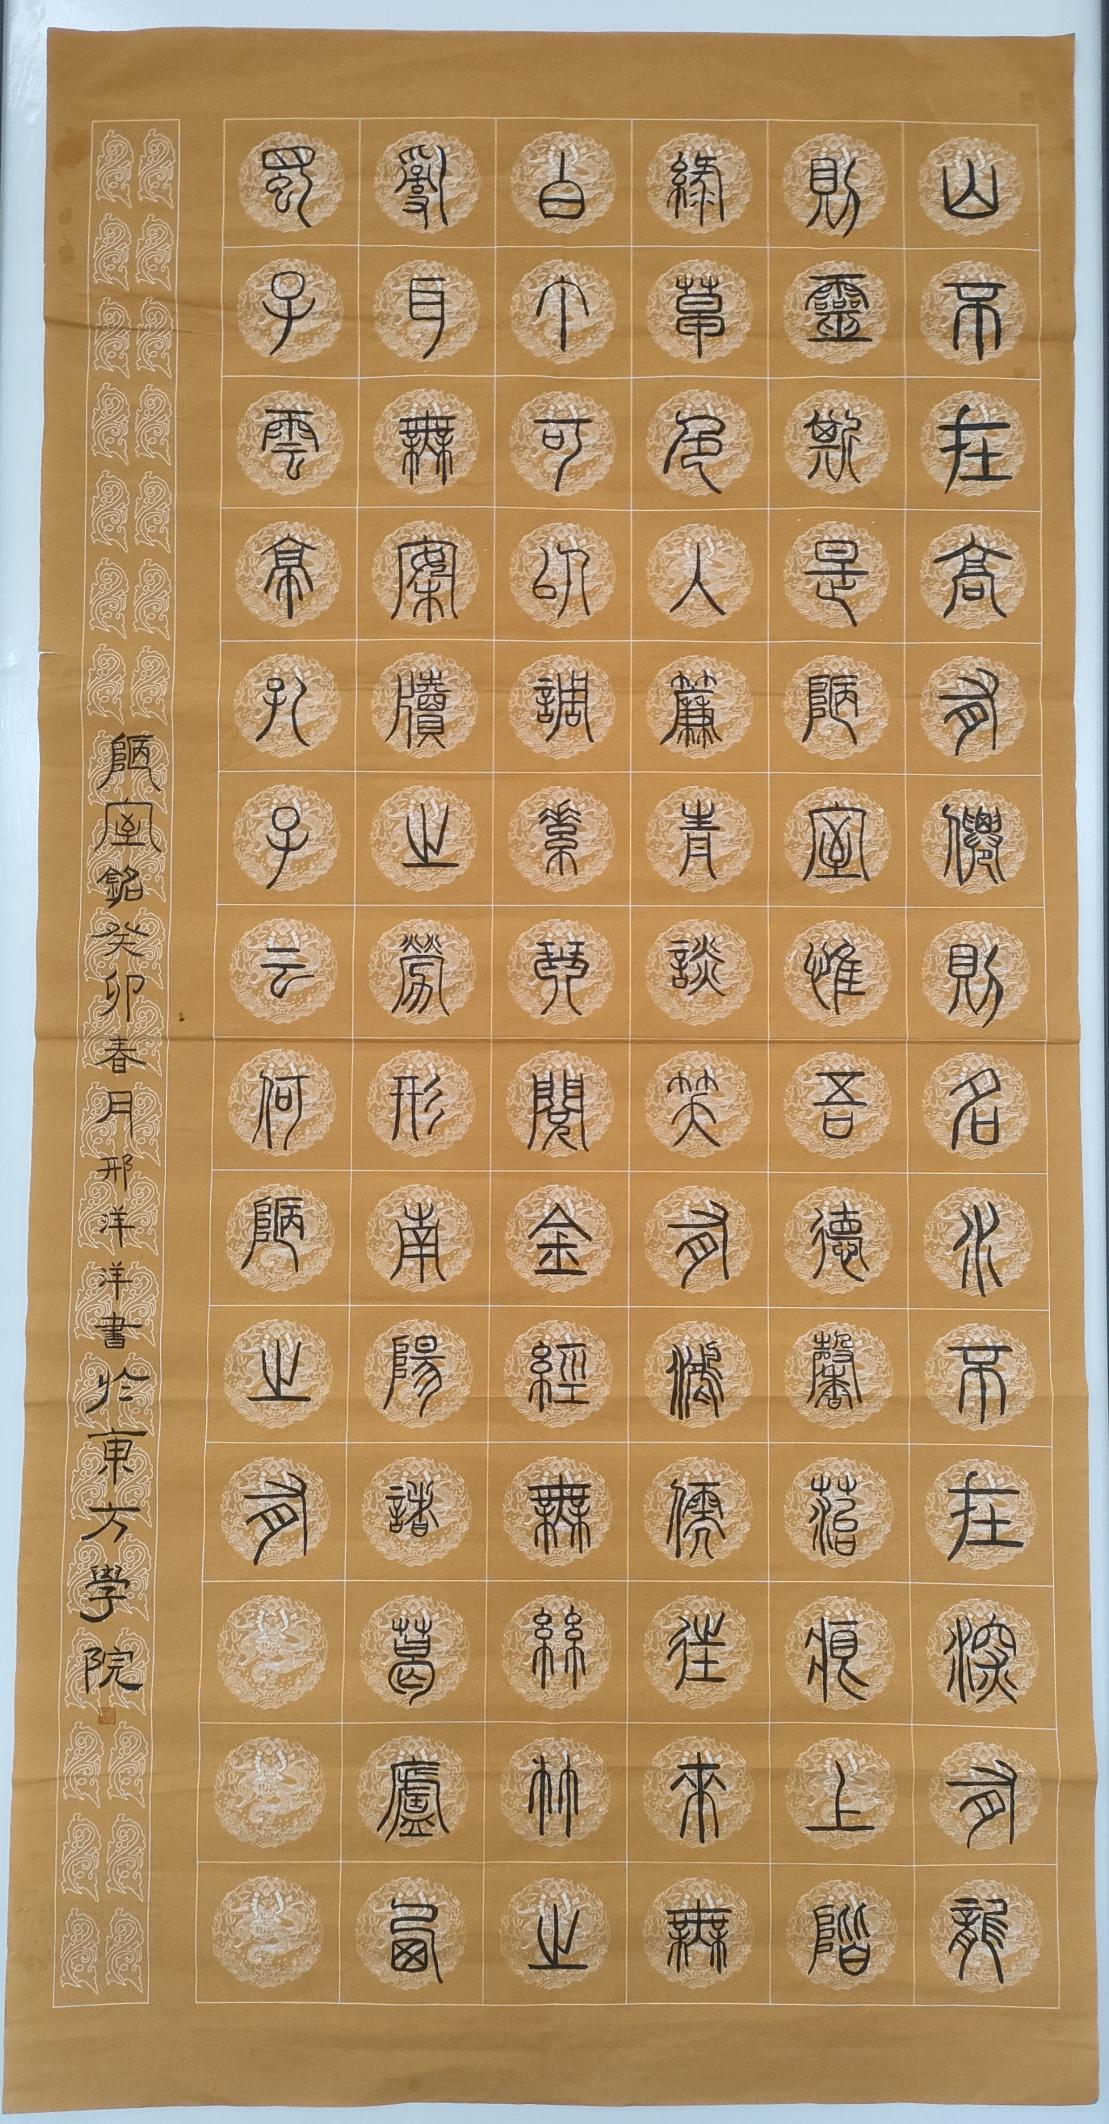 山不在高有僊則名水不在深有龍
則靈斯是陋室惟吾德馨菭痕上階
綠草色人簾青談笑有鴻儒往來無
白丁可以調素琴閱金經無絲竹之
亂耳無案牘之勞形南陽諸葛廬西
蜀子雲亭孔子云何陋之有
陋室銘癸卯春月邢洋洋書於東方學院